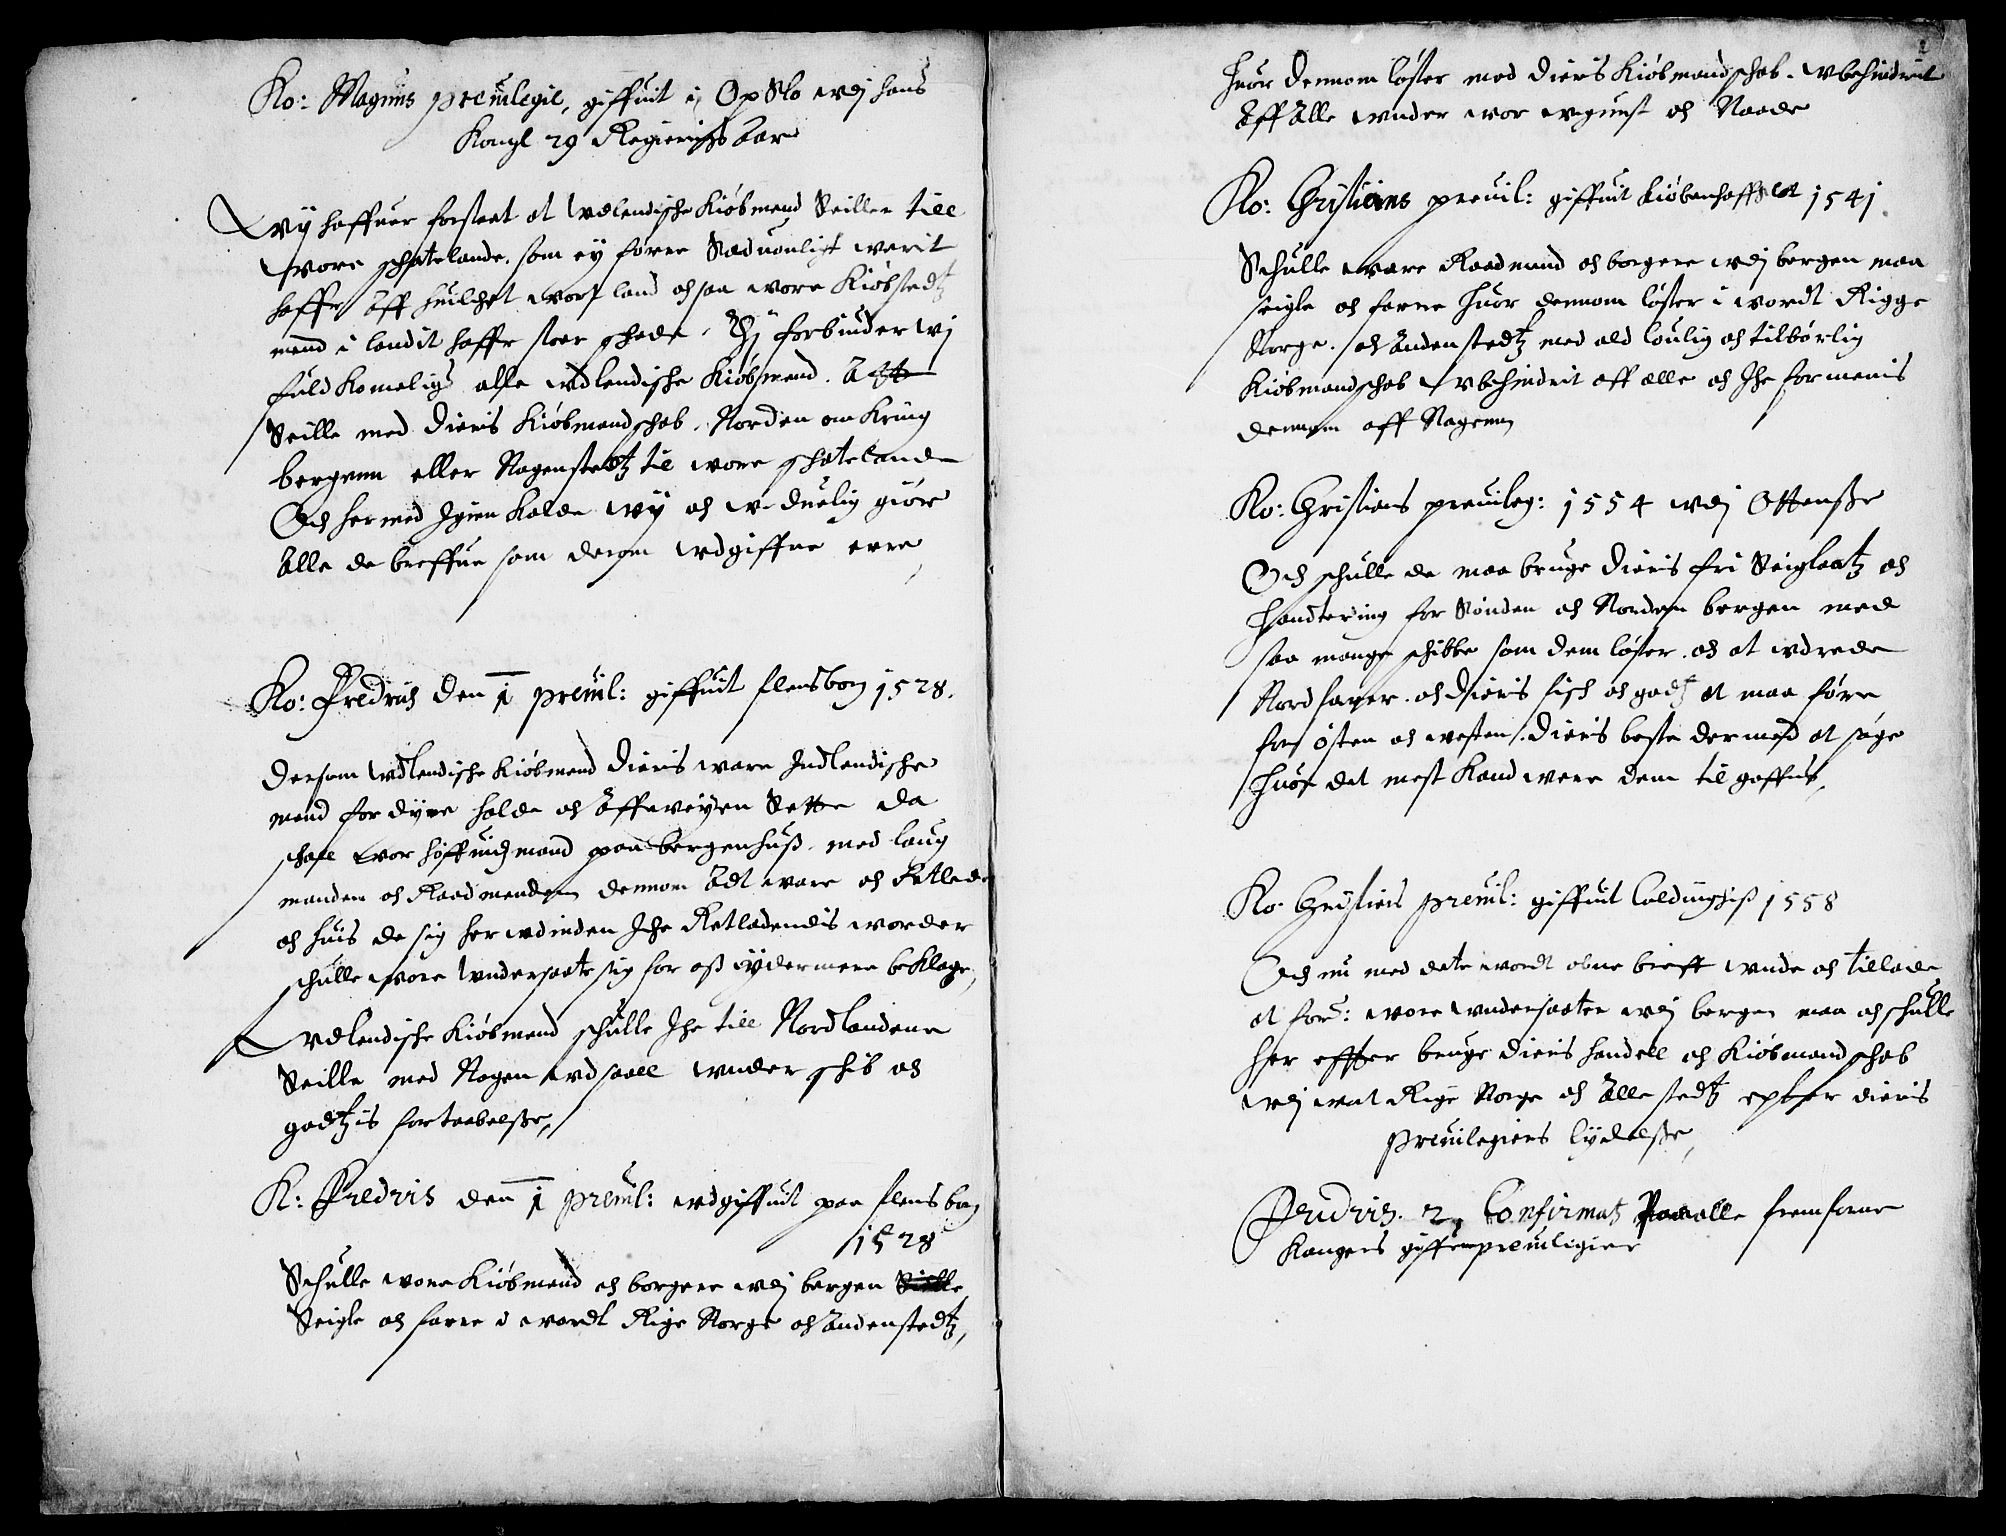 Ko: Magnus preuilegie, giffuit i OpSlo wdj hans
Kongl 29 Regierings Aar
Wij haffuer forstaet at Wdlendische Kiøbmend Seiller till
wore schatelande, som ey førre Sæduonligt werit
haffr Aff huilchet wort land och saa wore Kiøbstedtz
mend i landit haffr stoer schade, Thj forbinder wj
fuldKomelig alle wdlendische Kiøbmend. Att
Seille med dieris Kiøbmandschab, Norden omkring
bergenn eller Nogenstedtz til wore schatelande
Och hermed Igien Kalde wij och w-duelig giør
Alle de breffue som derom wdgiffne erre,
Ko: Fredrich den 1 preuil: giffuit flensborg 1528.
Dersom Wdlendische Kiøbmend dieris ware Indlendische
mend for dyre holde och Affueiyen Sette da
schall wor høffuidzmand paa bergenhuß, med laug
manden och Raadmendenn dennom Adt ware och Retlede
och huis de sig her wdinden Iche Retledendis worder
schulle wore Wndersaate sig for oß ydermere beklage,
Wdlendische Kiøbmend schulle Iche till Nordlandene
Seille med Nogen wdsaell wnder schib och
godtzis fortabelße,
K: Fredrich den 1 preuil: wdgiffuit paa flensborg
1528
Schulle wore Kiøbmend och borgere wdj bergen
Seigle och farre i wordt Rige Norge och Andenstedtz,
2
huor dennom løster med dieris Kiøbmandschab. Wbehindrit
Aff Alle wnder wor wgunst och Naade
Ko: Christians preuil: giffuit Kiøbenhaffs Slot 1541
Schulle wore Raadmend och borgere wdj bergen maa
seigle och farre huor dennom løster i wordt Rigge
Norge. och Andenstedtz med ald loulig och tilbørlig
Kiøbmandschab Wbehindrit aff alle och Iche formenis
dennom aff Nogenn
Ko: Christians preuileg: 1554 wdj Ottensße
Och schulle de maa bruge dieris fri Seiglaatz och
handtering for Sønden och Norden bergen med
saa mange schibbe som dem løster. och at wdrede
Nordfarer. och dieris fisch och godz at maa føre
for østen och westen. dieris beste dermed at søge
huor det mest Kand were dem til gaffns,
Ko: Christians preuil: giffuit Coldinghus 1558
Och nu med dete wordt obne breff wnde och tillade
at for: wore wndersaater wdj bergen maa och schulle
her effter bruge dieris handell och Kiøbmandschab
wdj wort Rige Norge och Alle stedtz epter dieris
Preuilegiers lydelße,
Fridrich. 2, Confirmatz Paa alle fremfarne
Kongers giffne preuiligier